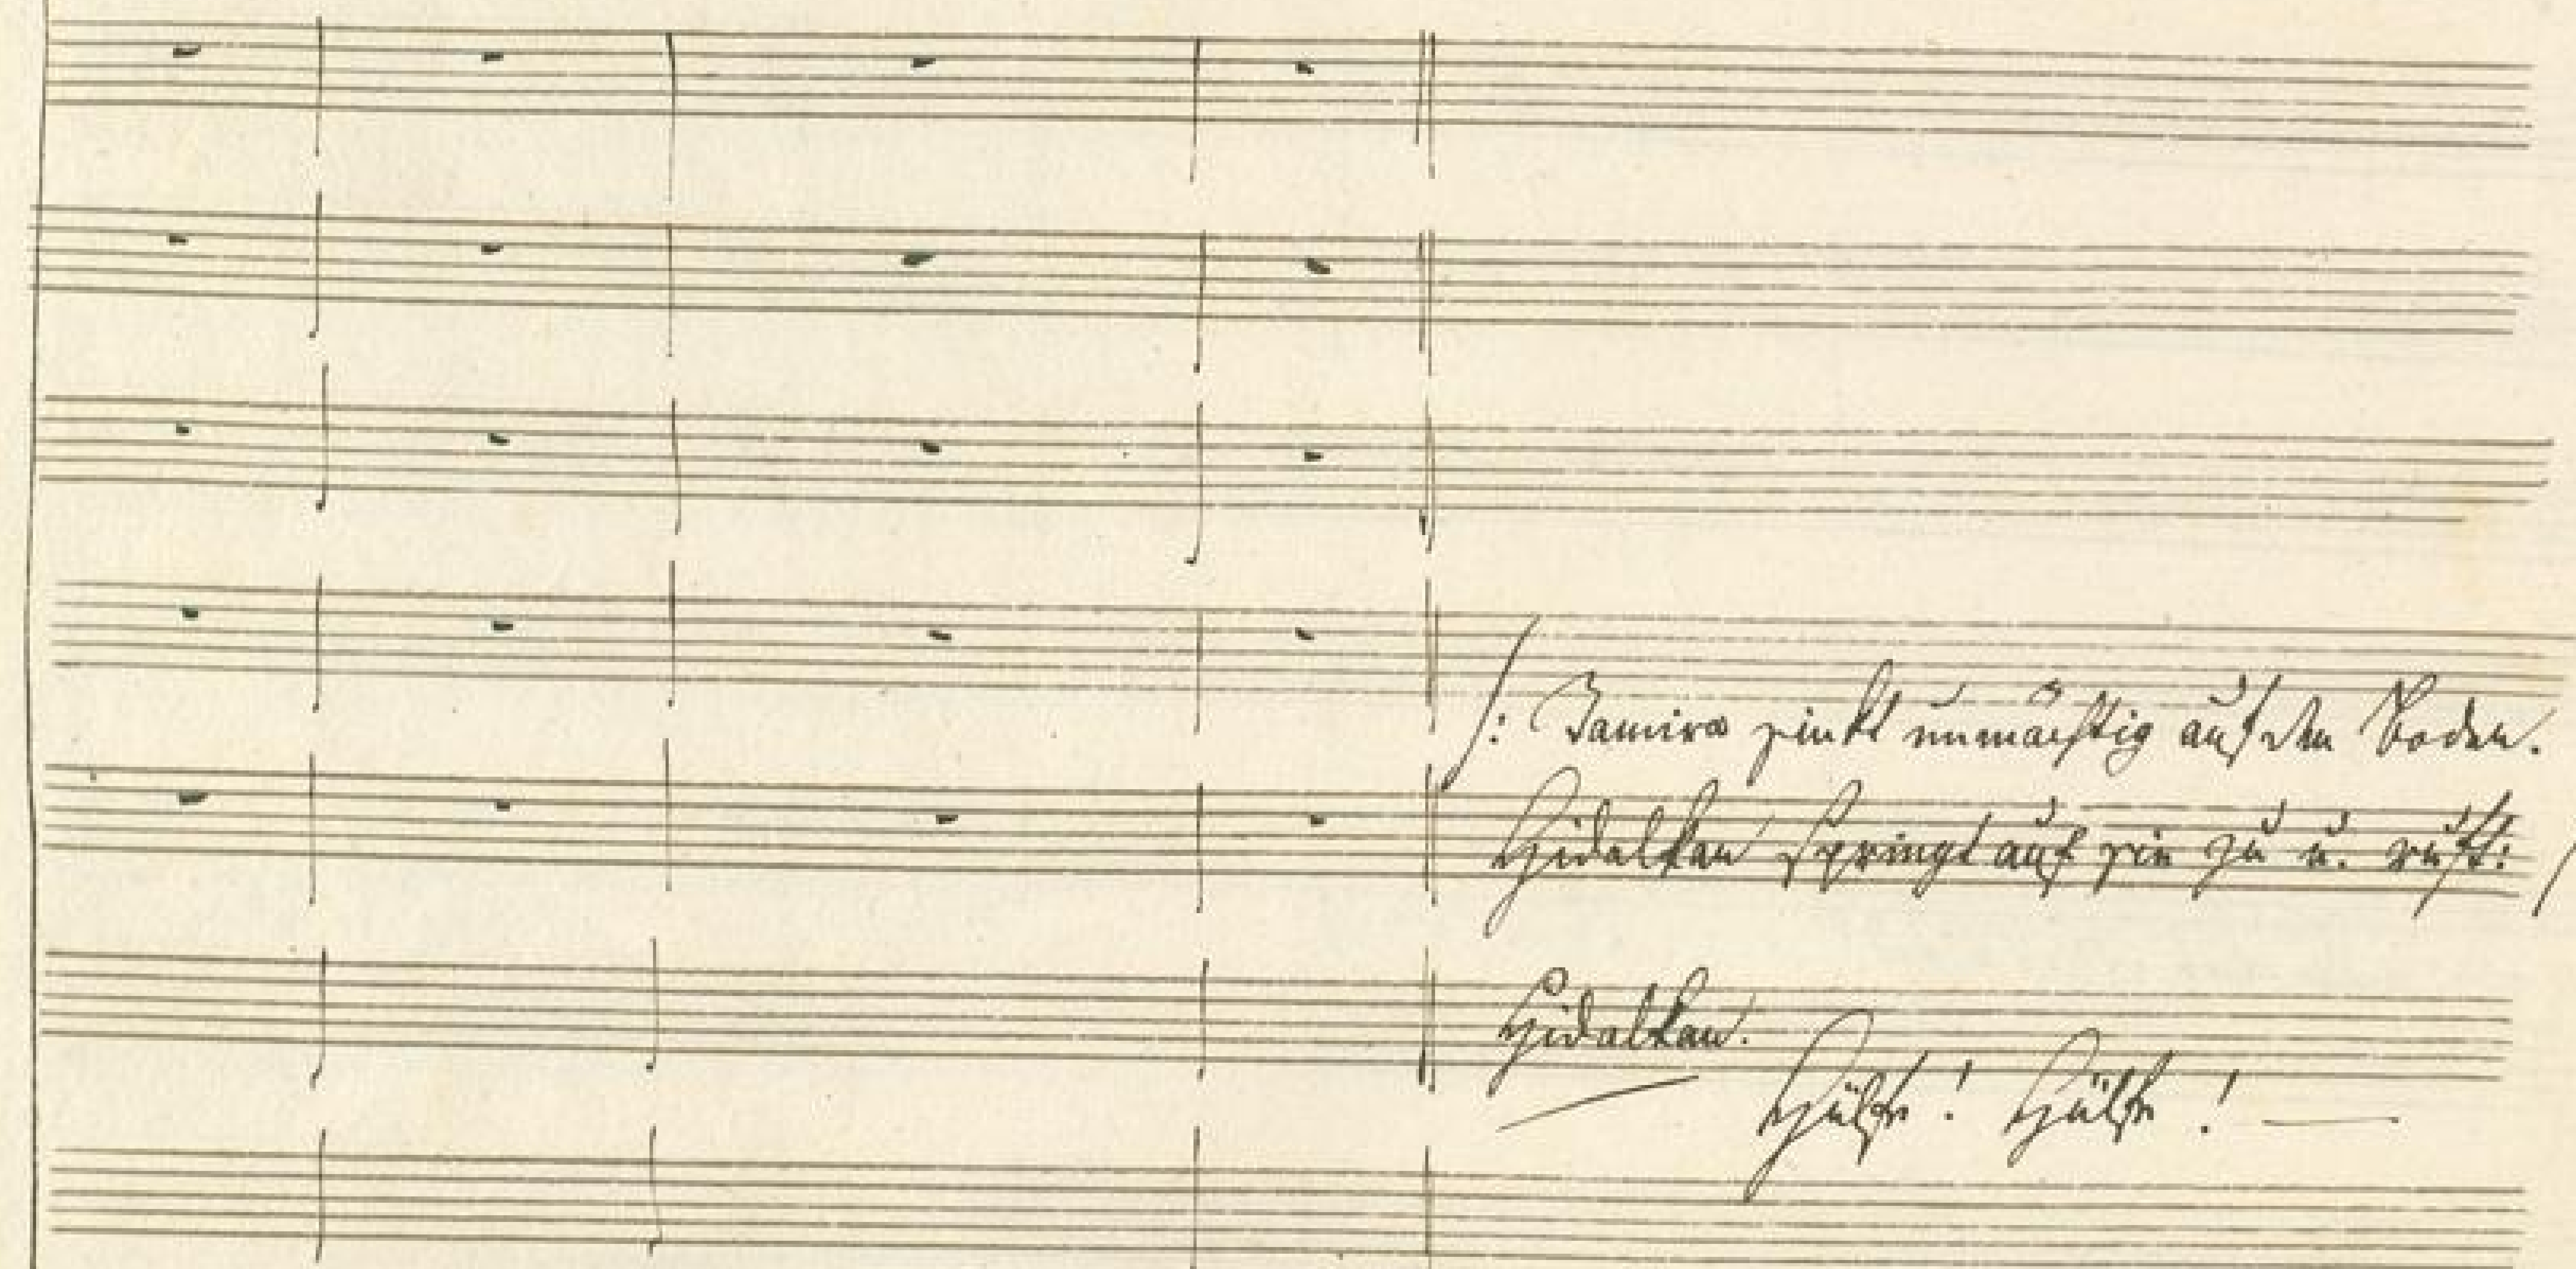 /: Zamira sinkt unmächtig auf den Boden.
Hidalkan springt auf sie zu u. ruft: /
Hidalkan.
Hülfe! Hülfe! —